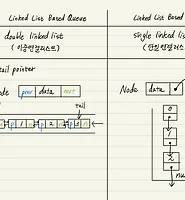 Linked List Based Queue
double linked list
(이중연결리스트)
tail pointer
prev data next
tail
p 1 n p 2 n p 3 n
Linked List Based
single linked list
(단일연결리스트
Node data
0
1
2
nu